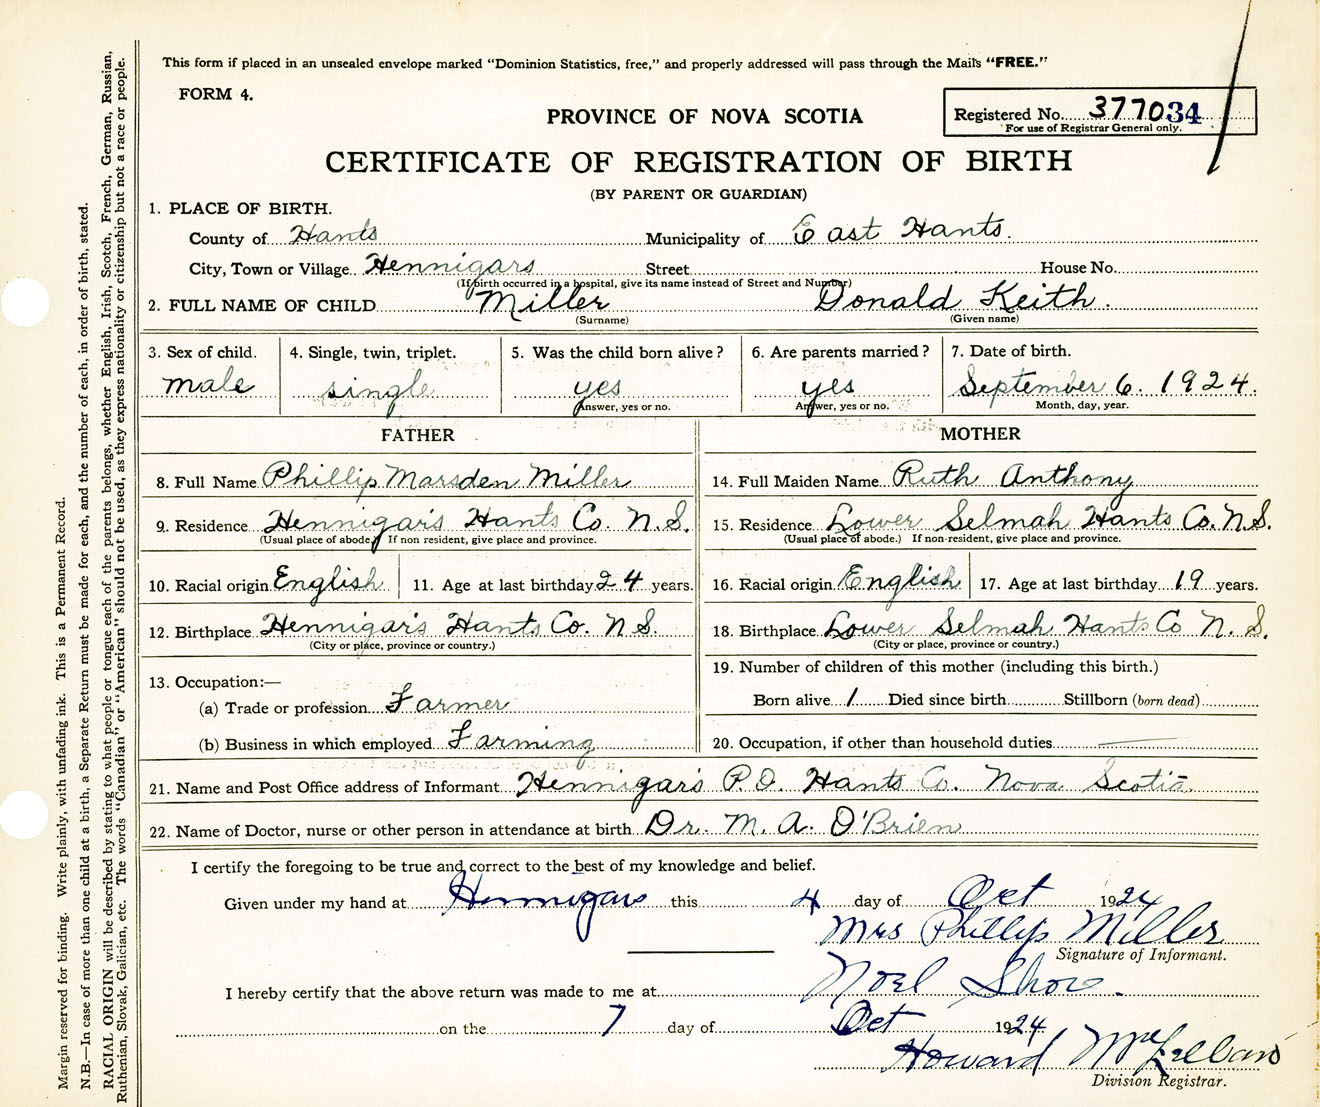 This form if placed in an unsealed envelope marked "Dominion Statistics, free," and properly addressed will pass through the Mails "FREE."
FORM 4.
PROVINCE OF NOVA SCOTIA
Registered No. 377034
For use of Registrar General only.
CERTIFICATE OF REGISTRATION OF BIRTH
(BY PARENT OR GUARDIAN)
1. PLACE OF BIRTH.
County of Hants Municipality of East Hants.
City, Town or Village Hennigars Street House No.
(If birth occurred in a hospital, give its name instead of Street and Number)
2. FULL NAME OF CHILD Miller Donald Keith.
(Surname) (Given name)
3. Sex of child. 4. Single, twin, triplet. 5. Was the child born alive? 6. Are parents married? 7. Date of birth.
male single yes yes September 6. 1924.
Answer, yes or no. Answer, yes or no. Month, day, year.
FATHER MOTHER
8. Full Name Phillip Marsden Miller 14. Full Maiden Name Ruth Anthony
9. Residence Hennigar's Hants Co. N.S. 15. Residence Lower Selmah Hants Co. N.S.
(Usual place of abode.) If non resident, give place and province. (Usual place of abode.) If non-resident, give place and province.
10. Racial origin English 11. Age at last birthday 24 years. 16. Racial origin English 17. Age at last birthday 19 years.
12. Birthplace Hennigar's Hants Co. N.S. 18. Birthplace Lower Selmah Hants Co N.S.
(City or place, province or country.) (City or place, province or country.)
13. Occupation:— 19. Number of children of this mother (including this birth.)
(a) Trade or profession Farmer Born alive 1 Died since birth Stillborn (born dead)
(b) Business in which employed Farming 20. Occupation, if other than household duties
21. Name and Post Office address of Informant Hennigar's P.O. Hants Co. Nova Scotia
22. Name of Doctor, nurse or other person in attendance at birth Dr. M. A. O'Brien
I certify the foregoing to be true and correct to the best of my knowledge and belief.
Given under my hand at Hennigars this 4 day of Oct 1924
Mrs Phillip Miller
Signature of Informant.
I hereby certify that the above return was made to me at Noel Shore.
on the 7 day of Oct 1924
Howard McLellan
Division Registrar.
Margin reserved for binding. Write plainly, with unfading ink. This is a Permanent Record.
N.B.—In case of more than one child at a birth, a Separate Return must be made for each, and the number of each, in order of birth, stated.
RACIAL ORIGIN will be described by stating to what people or tongue each of the parents belongs, whether English, Irish, Scotch, French, German, Russian,
Ruthenian, Slovak, Galician, etc. The words "Canadian" or "American" should not be used, as they express nationality or citizenship but not a race or people.